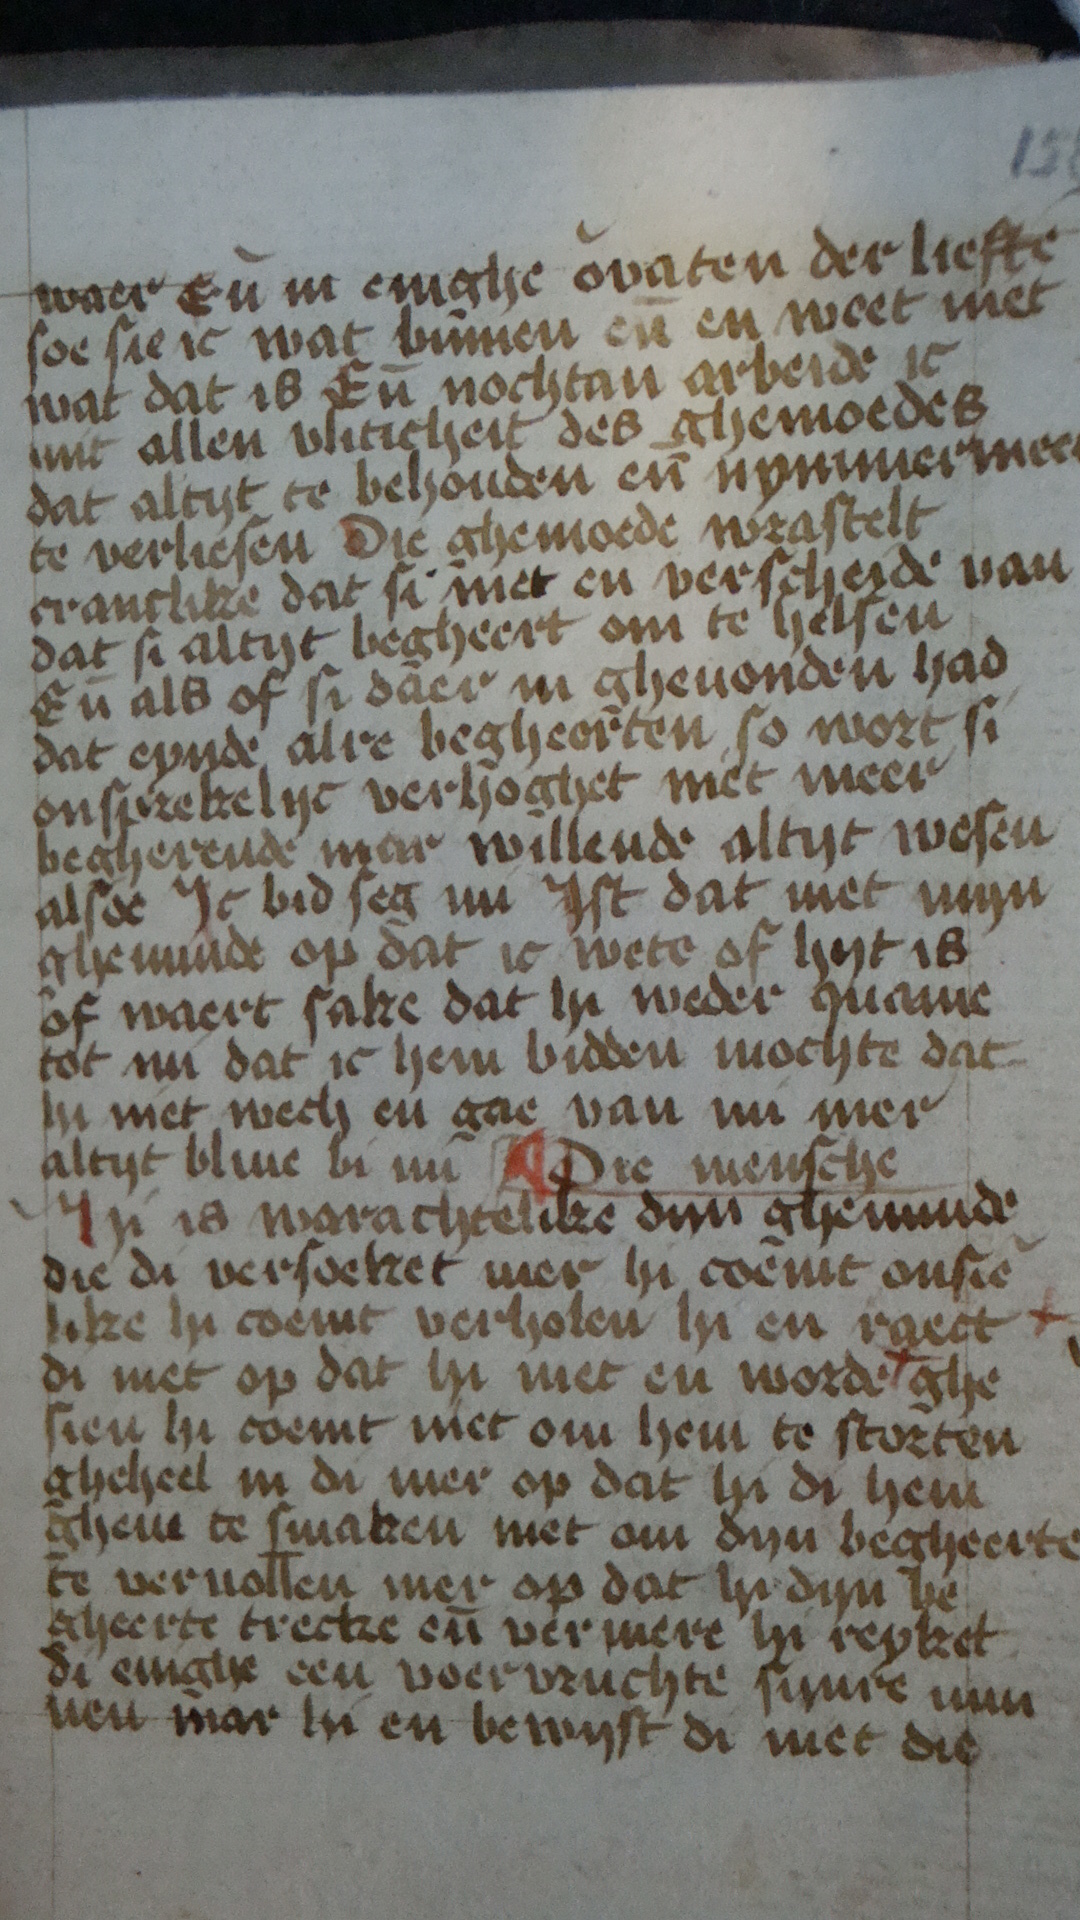 waer Eñ in enighe ōvaten der liefte
soe sie ic wat binnen eñ en weet niet
wat dat is Eñ nochtan arbeide ic
mit allen vliticheit des ghemoedes
dat altijt te behouden eñ nymmermeer
te verliesen Die ghemoede wrastelt
cranclike dat si niet en verscheide van
dat si altijt begheert om te helsen
Eñ als of si daer in gheuonden had
dat eynde alre begheerten so wort si
onsprekelijc verhoghet niet meer
begherende mar willende altijt wesen
alsoe Ic bid seg mi Ist dat niet mijn
gheminde op dat ic wete of hijt is
of waert sake dat hi weder quame
tot mi dat ic hem bidden mochte dat
hi niet wech en gae van mi mer
altijt bliue bi mi Die mensche
Hi is warachtelike dijn gheminde
die di versoeket mer hi coemt onsie
like hi coemt verholen hi en raect
di niet op dat hi niet en worde ghe
sien hi coemt niet om hem te storten
gheheel in di mer op dat hi di hem
gheue te smaken niet om dijn begheerte
te veruollen mer op dat hi dijn be
gheerte trecke eñ vermere hi reyket
di enighe een voervruchte sijnre min
nen mar hi en bewijst di niet die